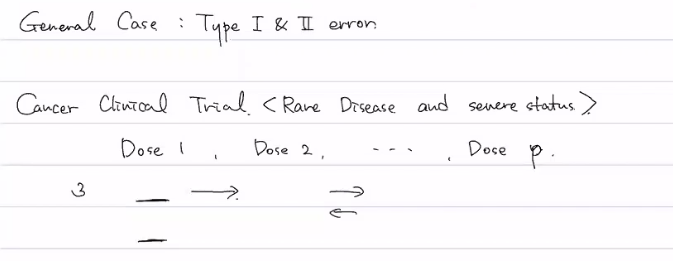 General Case : Type I & II error
Cancer Clinical Trial. <Rare Disease and severe status>
Dose 1 , Dose 2, --- , Dose p.
3 — → →
←
—